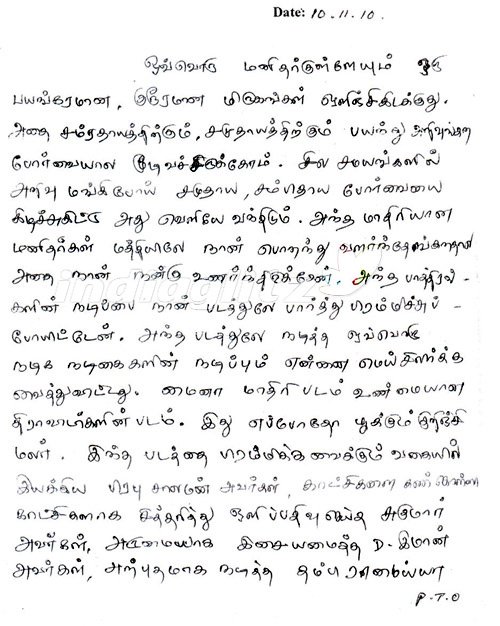 Date: 10.11.10.
ஒவ்வொரு மனிதர்குள்ளேயும் ஒரு
பயங்கரமான, குரூரமான மிருகங்கள் ஒளிஞ்சிகிடக்குது.
அதை சம்ரதாயத்திற்கும், சமுதாயத்திற்கும் பயந்து அறிவுங்கற
போர்வையால மூடிவச்சிருக்கோம். சில சமயங்களில்
அறிவு மங்கிபோய் சமுதாய, சம்பரதாய போர்வையை
கிழிச்சுகிட்டு அது வெளியே வந்திடும். அந்த மாதிரியான
மனிதர்கள் மத்தியிலே நான் பொறந்து வளர்ந்தேங்கறதால
அதை நான் நன்கு உணர்ந்திருக்கேன். அந்த பாத்திரங்-
களின் நடிப்பை நான் படத்துலே பார்த்து பிரம்மிச்சுப்-
போயிட்டேன். அந்த படத்துலே நடித்த ஒவ்வொரு
நடிக நடிகைகளின் நடிப்பும் என்னை மெய்சிலிர்க்க
வைத்துவிட்டது. மைனா மாதிரி படம் உண்மையான
திராவிடர்களின் படம். இது எப்போதோ பூக்கும் குறிஞ்சி
மலர். இந்த படத்தை பிரம்மிக்க வைக்கும் வகையில்
இயக்கிய பிரபு சாலமன் அவர்கள், காட்சிகளை கண்கொள்ளா
காட்சிகளாக சித்தரித்து ஒளிப்பதிவு செய்த சுகுமார்
அவர்கள், அருமையாக இசையமைத்த D. இமான்
அவர்கள், அற்புதமாக நடித்த தம்பி ராமைய்யா
P.T.O
indiaglitz